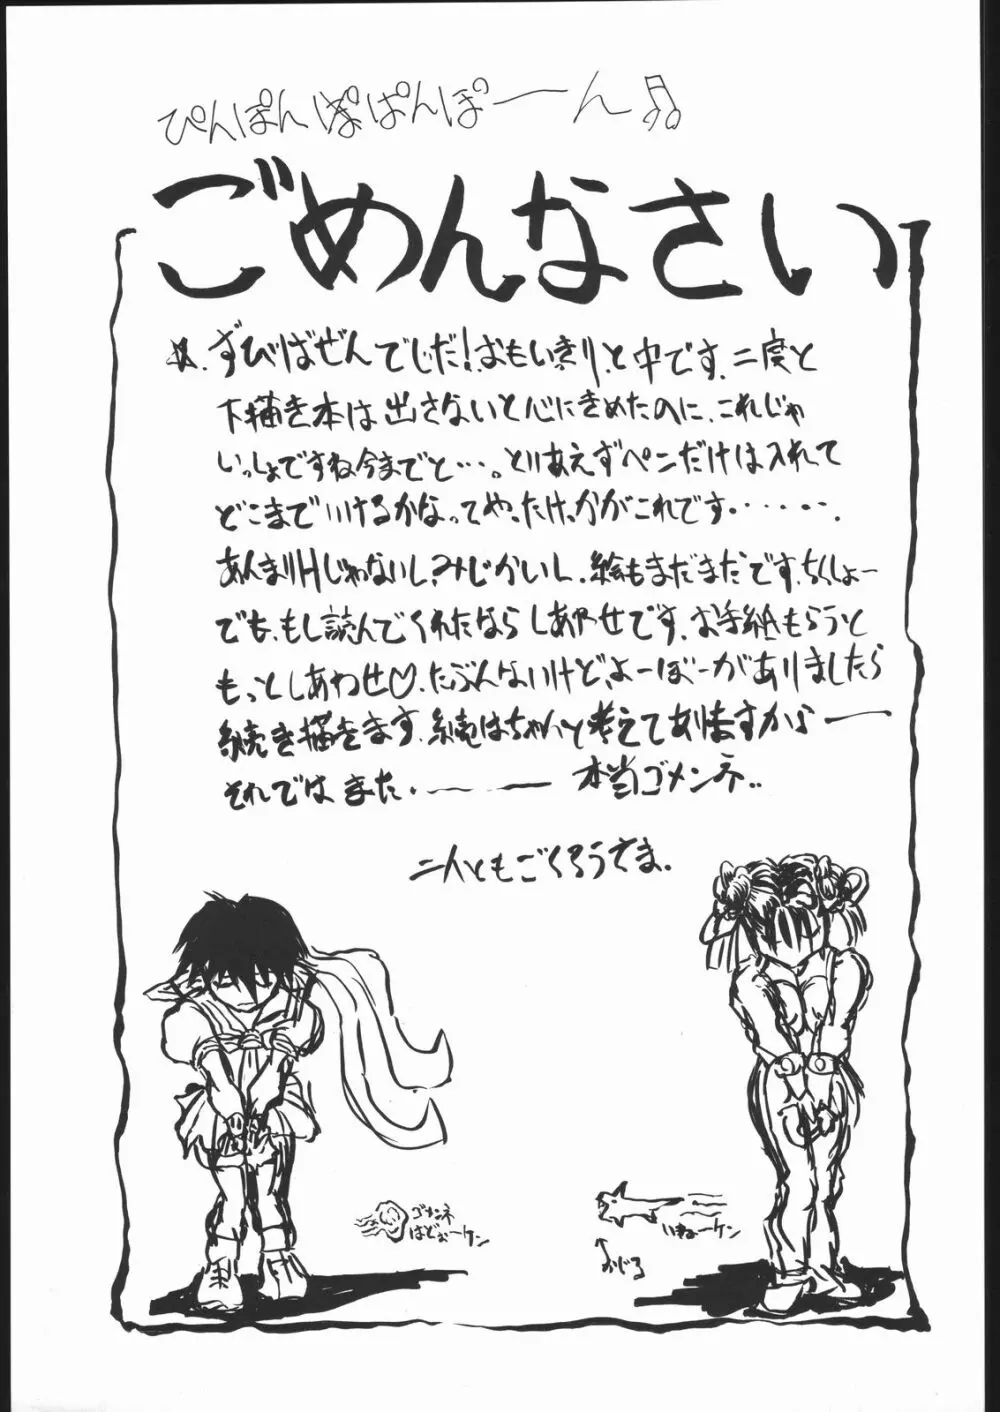 ぴんぽんぱぱんぽーん♬
ごめんなさい
☆.ずびばぜんでじだ!おもいきりと中です.二度と
下描き本は出さないと心にきめたのに、これじゃ
いっしょですね今までと…。とりあえずペンだけは入れて
どこまでいけるかなってやったけっかがこれです・・・・・・.
あんまりHじゃないしみじかいし、絵もまだまだです.ちくしょー
でも、もし読んでくれたなら しあわせです.お手紙もらうと
もっとしあわせ♡.たぶんないけど、よーぼーがありましたら
続き描きます.続はちゃんと考えてありますからー
それではまた.ーー 本当ゴメンネ..
二人ともごくろうさま.
ゴメンネ
はどぉーケン
↑
おじる